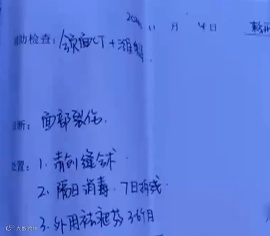 11月4日
辅助检查：颌面CT+三维重建
诊断：面部裂伤。
处置：1. 清创缝合术
2. 隔日消毒，7日拆线
3. 外用祛疤 3-6个月